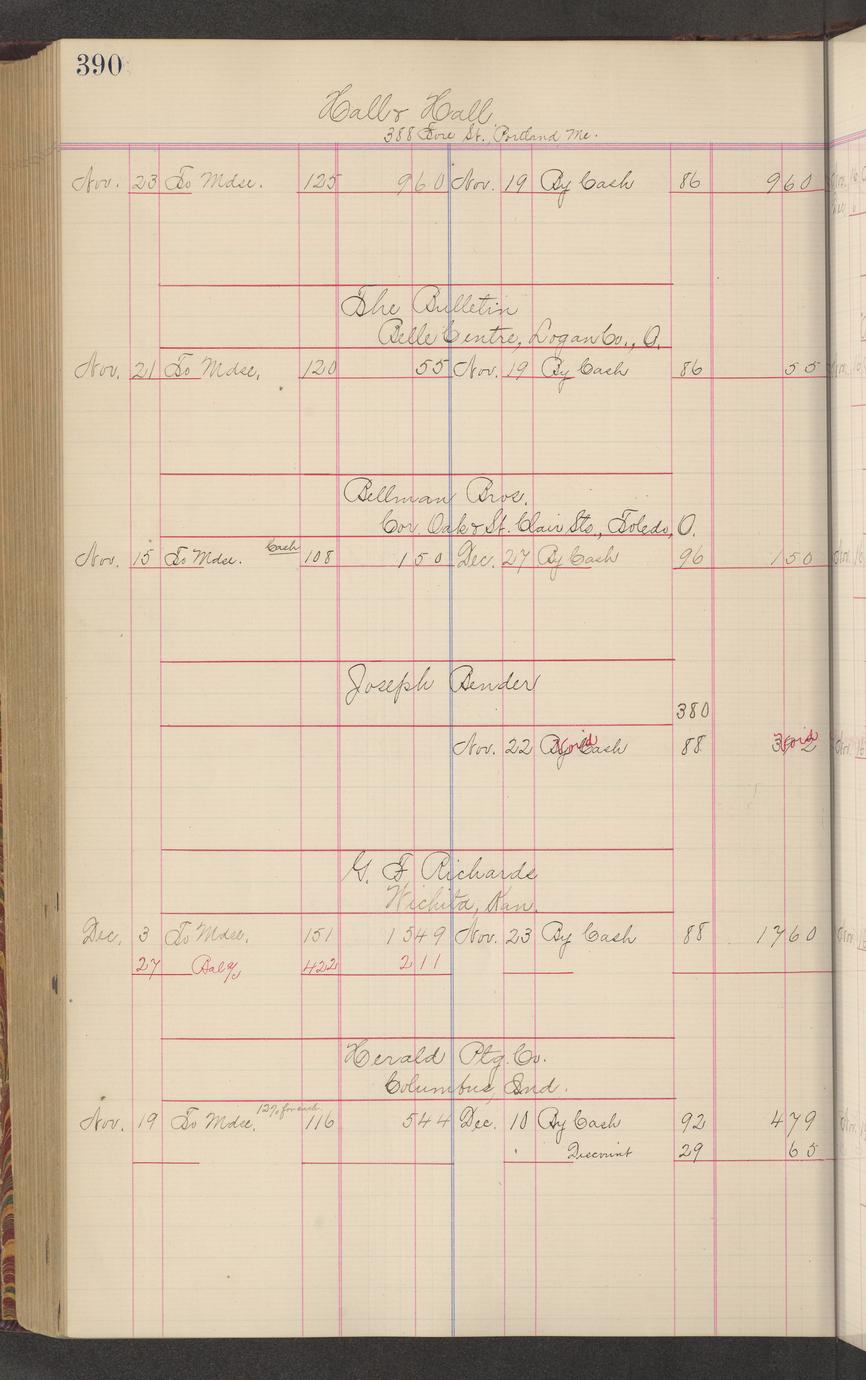 390
Hall & Hall
388 Fore St., Portland Me.
Nov. 23 To Mdse. 125 960 Nov. 19 By Cash 86 960
The Bulletin
Belle Centre, Logan Co., O.
Nov. 21 To Mdse. 120 55 Nov. 19 By Cash 86 55
Bellman Bros.
Cor. Oak & St. Clair Sts., Toledo, O.
Nov. 15 To Mdse. Cash 108 150 Dec. 27 By Cash 96 150
Joseph Bender
380
Nov. 22 By Cash Void 88 Void
G. F Richards
Wichita, Kan.
Dec. 3 To Mdse. 151 1549 Nov. 23 By Cash 88 1760
27 Bal 422 211
Herald Ptg. Co.
Columbus, Ind.
Nov. 19 To Mdse. 12% for cash 116 544 Dec. 10 By Cash 92 479
Discount 29 65